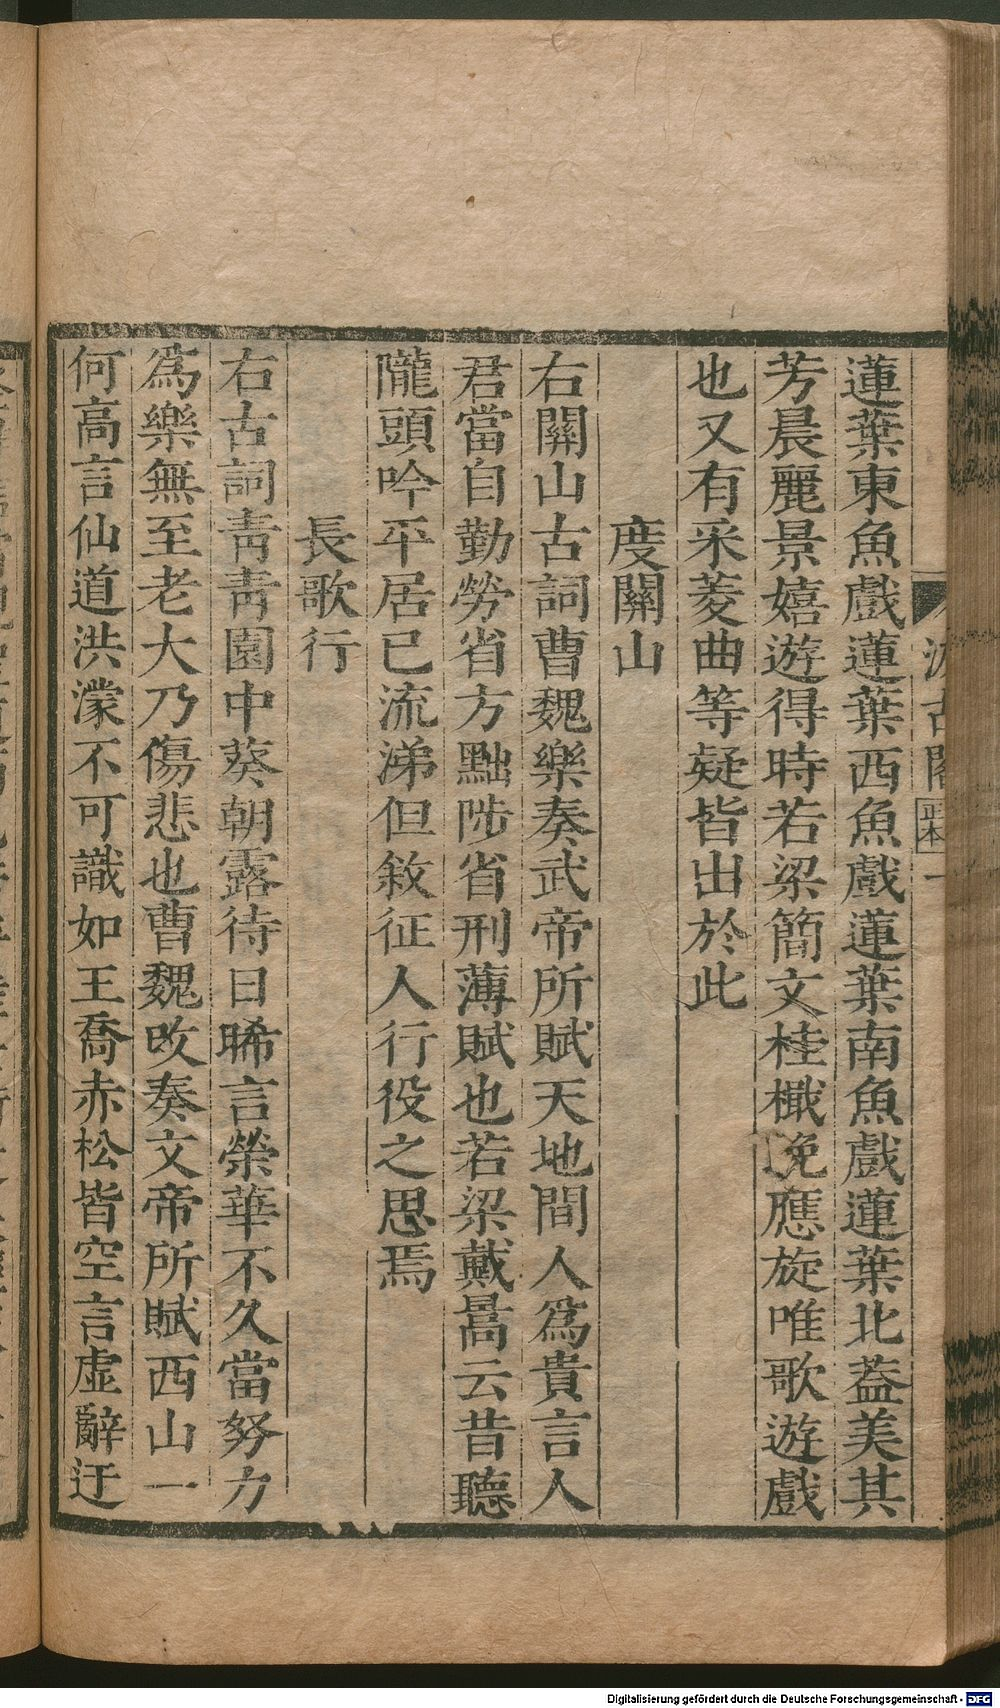 汲古閣
正本
蓮葉東魚戲蓮葉西魚戲蓮葉南魚戲蓮葉北葢美其
芳晨麗景嬉遊得時若梁簡文桂檝晚應旋唯歌遊戲
也又有采菱曲等疑皆出於此
度關山
右關山古詞曹魏樂奏武帝所賦天地間人爲貴言人
君當自勤勞省方黜陟省刑薄賦也若梁戴暠云昔聽
隴頭吟平居已流涕但敘征人行役之思焉
長歌行
右古詞靑靑園中葵朝露待日晞言榮華不久當努力
爲樂無至老大乃傷悲也曹魏攺奏文帝所賦西山一
何高言仙道洪濛不可識如王喬赤松皆空言虛辭迂
Digitalisierung gefördert durch die Deutsche Forschungsgemeinschaft - DFG